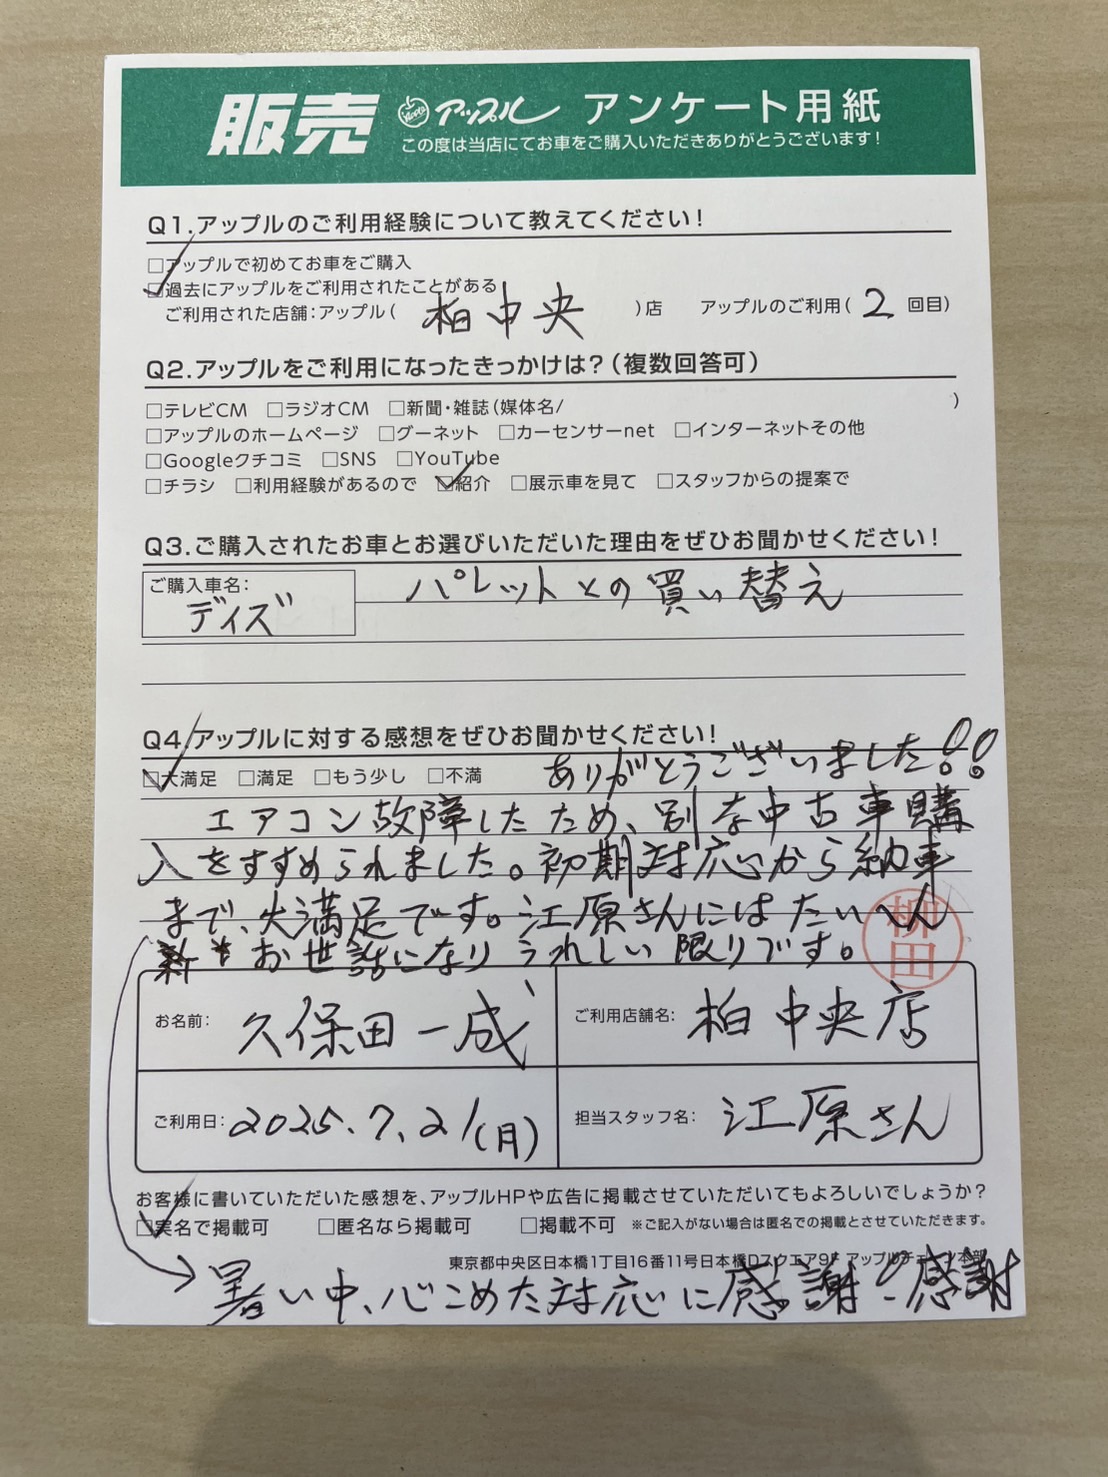 販売 アップル アンケート用紙
この度は当店にてお車をご購入いただきありがとうございます!
Q1.アップルのご利用経験について教えてください!
□アップルで初めてお車をご購入
☑過去にアップルをご利用されたことがある
ご利用された店舗:アップル( 柏中央 )店 アップルのご利用( 2 回目)
Q2.アップルをご利用になったきっかけは?(複数回答可)
□テレビCM □ラジオCM □新聞・雑誌(媒体名/ )
□アップルのホームページ □グーネット □カーセンサーnet □インターネットその他
□Googleクチコミ □SNS □YouTube
□チラシ □利用経験があるので ☑紹介 □展示車を見て □スタッフからの提案で
Q3.ご購入されたお車とお選びいただいた理由をぜひお聞かせください!
ご購入車名:
デイズ パレットとの買い替え
Q4.アップルに対する感想をぜひお聞かせください!
☑大満足 □満足 □もう少し □不満 ありがとうございました!!
エアコン故障したため、別な中古車購
入をすすめられました。初期対応から納車
まで、大満足です。江原さんにはたいへん
お世話になりうれしい限りです。
柳田
お名前: 久保田一成 ご利用店舗名: 柏中央店
ご利用日: 2025.7.21(月) 担当スタッフ名: 江原さん
お客様に書いていただいた感想を、アップルHPや広告に掲載させていただいてもよろしいでしょうか?
☑実名で掲載可 □匿名なら掲載可 □掲載不可 ※ご記入がない場合は匿名での掲載とさせていただきます。
東京都中央区日本橋1丁目16番11号日本橋Dスクエア9F アップルチェーン本部
暑い中、心こめた対応に感謝!感謝